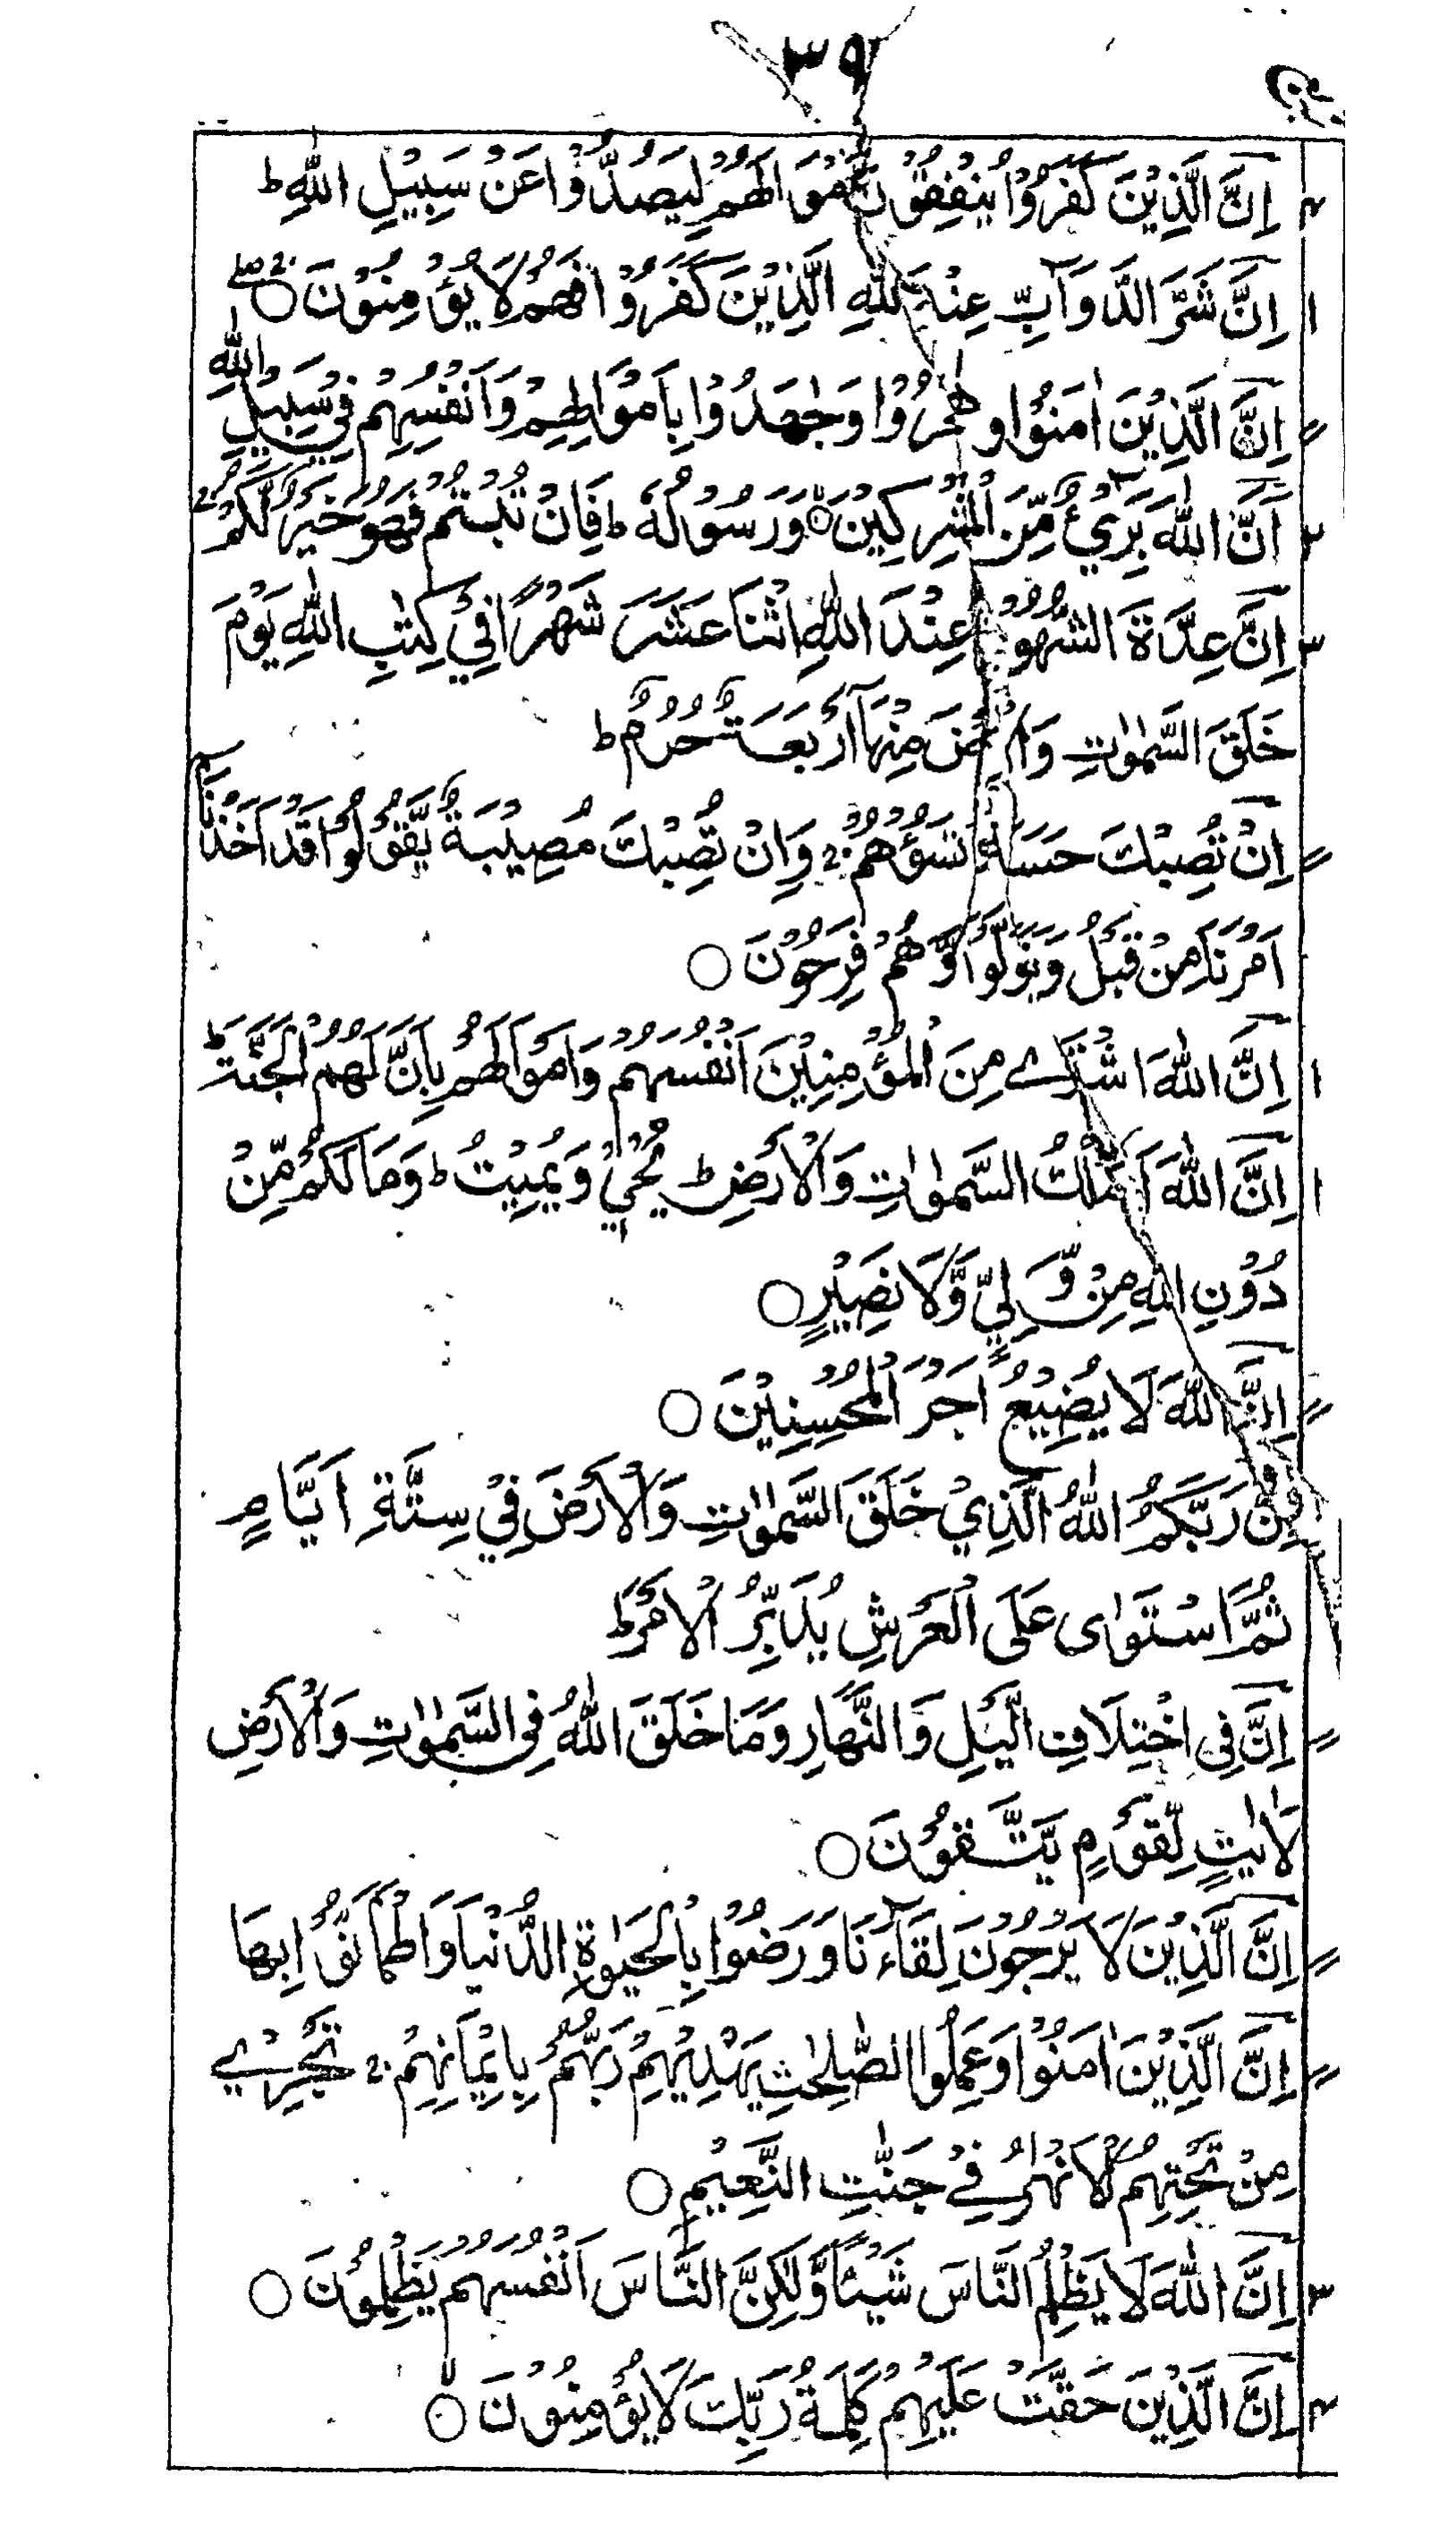 ٣٩
اِنَّ الَّذِيْنَ كَفَرُوْا يُنْفِقُوْنَ اَمْوَالَهُمْ لِيَصُدُّوْا عَنْ سَبِيْلِ اللّٰهِ ط
اِنَّ شَرَّ الدَّوَآبِّ عِنْدَ اللّٰهِ الَّذِيْنَ كَفَرُوْا فَهُمْ لَا يُؤْمِنُوْنَ ○
اِنَّ الَّذِيْنَ اٰمَنُوْا وَهَاجَرُوْا وَجٰهَدُوْا بِاَمْوَالِهِمْ وَاَنْفُسِهِمْ فِيْ سَبِيْلِ اللّٰهِ
اَنَّ اللّٰهَ بَرِيْٓءٌ مِّنَ الْمُشْرِكِيْنَ ○ وَرَسُوْلُهٗ ط فَاِنْ تُبْتُمْ فَهُوَ خَيْرٌ لَّكُمْ
اِنَّ عِدَّةَ الشُّهُوْرِ عِنْدَ اللّٰهِ اثْنَا عَشَرَ شَهْرًا فِيْ كِتٰبِ اللّٰهِ يَوْمَ
خَلَقَ السَّمٰوٰتِ وَالْاَرْضَ مِنْهَآ اَرْبَعَةٌ حُرُمٌ ط
اِنْ تُصِبْكَ حَسَنَةٌ تَسُؤْهُمْ وَاِنْ تُصِبْكَ مُصِيْبَةٌ يَّقُوْلُوْا قَدْ اَخَذْنَآ
اَمْرَنَا مِنْ قَبْلُ وَيَتَوَلَّوْا وَّهُمْ فَرِحُوْنَ ○
اِنَّ اللّٰهَ اشْتَرٰے مِنَ الْمُؤْمِنِيْنَ اَنْفُسَهُمْ وَاَمْوَالَهُمْ بِاَنَّ لَهُمُ الْجَنَّةَ ط
اِنَّ اللّٰهَ لَهٗ مُلْكُ السَّمٰوٰتِ وَالْاَرْضِ ط يُحْيٖ وَيُمِيْتُ ط وَمَا لَكُمْ مِّنْ
دُوْنِ اللّٰهِ مِنْ وَّلِيٍّ وَّلَا نَصِيْرٍ ○
اِنَّ اللّٰهَ لَا يُضِيْعُ اَجْرَ الْمُحْسِنِيْنَ ○
اِنَّ رَبَّكُمُ اللّٰهُ الَّذِيْ خَلَقَ السَّمٰوٰتِ وَالْاَرْضَ فِيْ سِتَّةِ اَيَّامٍ
ثُمَّ اسْتَوٰى عَلَى الْعَرْشِ يُدَبِّرُ الْاَمْرَ ط
اِنَّ فِى اخْتِلَافِ الَّيْلِ وَالنَّهَارِ وَمَا خَلَقَ اللّٰهُ فِى السَّمٰوٰتِ وَالْاَرْضِ
لَاٰيٰتٍ لِّقَوْمٍ يَّتَّقُوْنَ ○
اِنَّ الَّذِيْنَ لَا يَرْجُوْنَ لِقَآءَنَا وَرَضُوْا بِالْحَيٰوةِ الدُّنْيَا وَاطْمَاَنُّوْا بِهَا
اِنَّ الَّذِيْنَ اٰمَنُوْا وَعَمِلُوا الصّٰلِحٰتِ يَهْدِيْهِمْ رَبُّهُمْ بِاِيْمَانِهِمْ تَجْرِيْ
مِنْ تَحْتِهِمُ الْاَنْهٰرُ فِيْ جَنّٰتِ النَّعِيْمِ ○
اِنَّ اللّٰهَ لَا يَظْلِمُ النَّاسَ شَيْئًا وَّلٰكِنَّ النَّاسَ اَنْفُسَهُمْ يَظْلِمُوْنَ ○
اِنَّ الَّذِيْنَ حَقَّتْ عَلَيْهِمْ كَلِمَةُ رَبِّكَ لَا يُؤْمِنُوْنَ ○